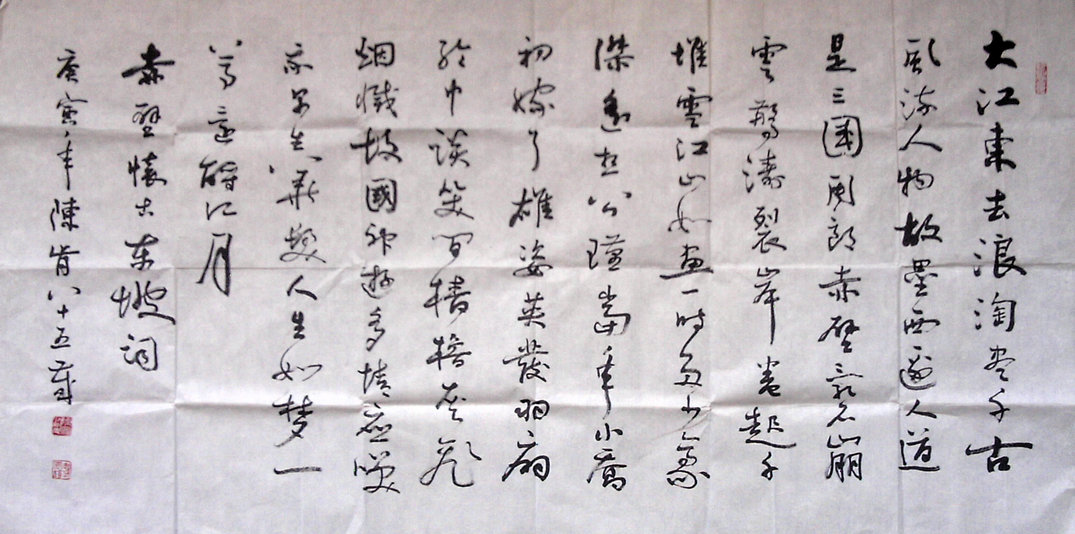 大江東去浪淘尽千古
風流人物故壘西邊人道
是三國周郎赤壁亂石崩
雲驚濤裂岸卷起千
堆雪江山如畫一時多少豪
傑遥想公瑾當年小喬
初嫁了雄姿英發羽扇
綸巾談笑间樯櫓灰飛
烟滅故國神遊多情應笑
我早生華髮人生如梦一
尊還酹江月
赤壁懷古東坡詞
庚寅年陳肯八十五歲